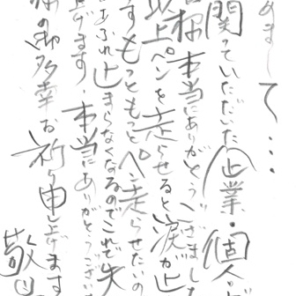 めまして…
関っていただいた企業・個人
様本当にありがとうございました
以上ペンを走らせると涙が止
す もっともっとペン走らせたいの
あふれ止まらなくなるのでこれで失
上げます。本当にありがとうござい
様の御多幸お祈り申し上げます
敬具